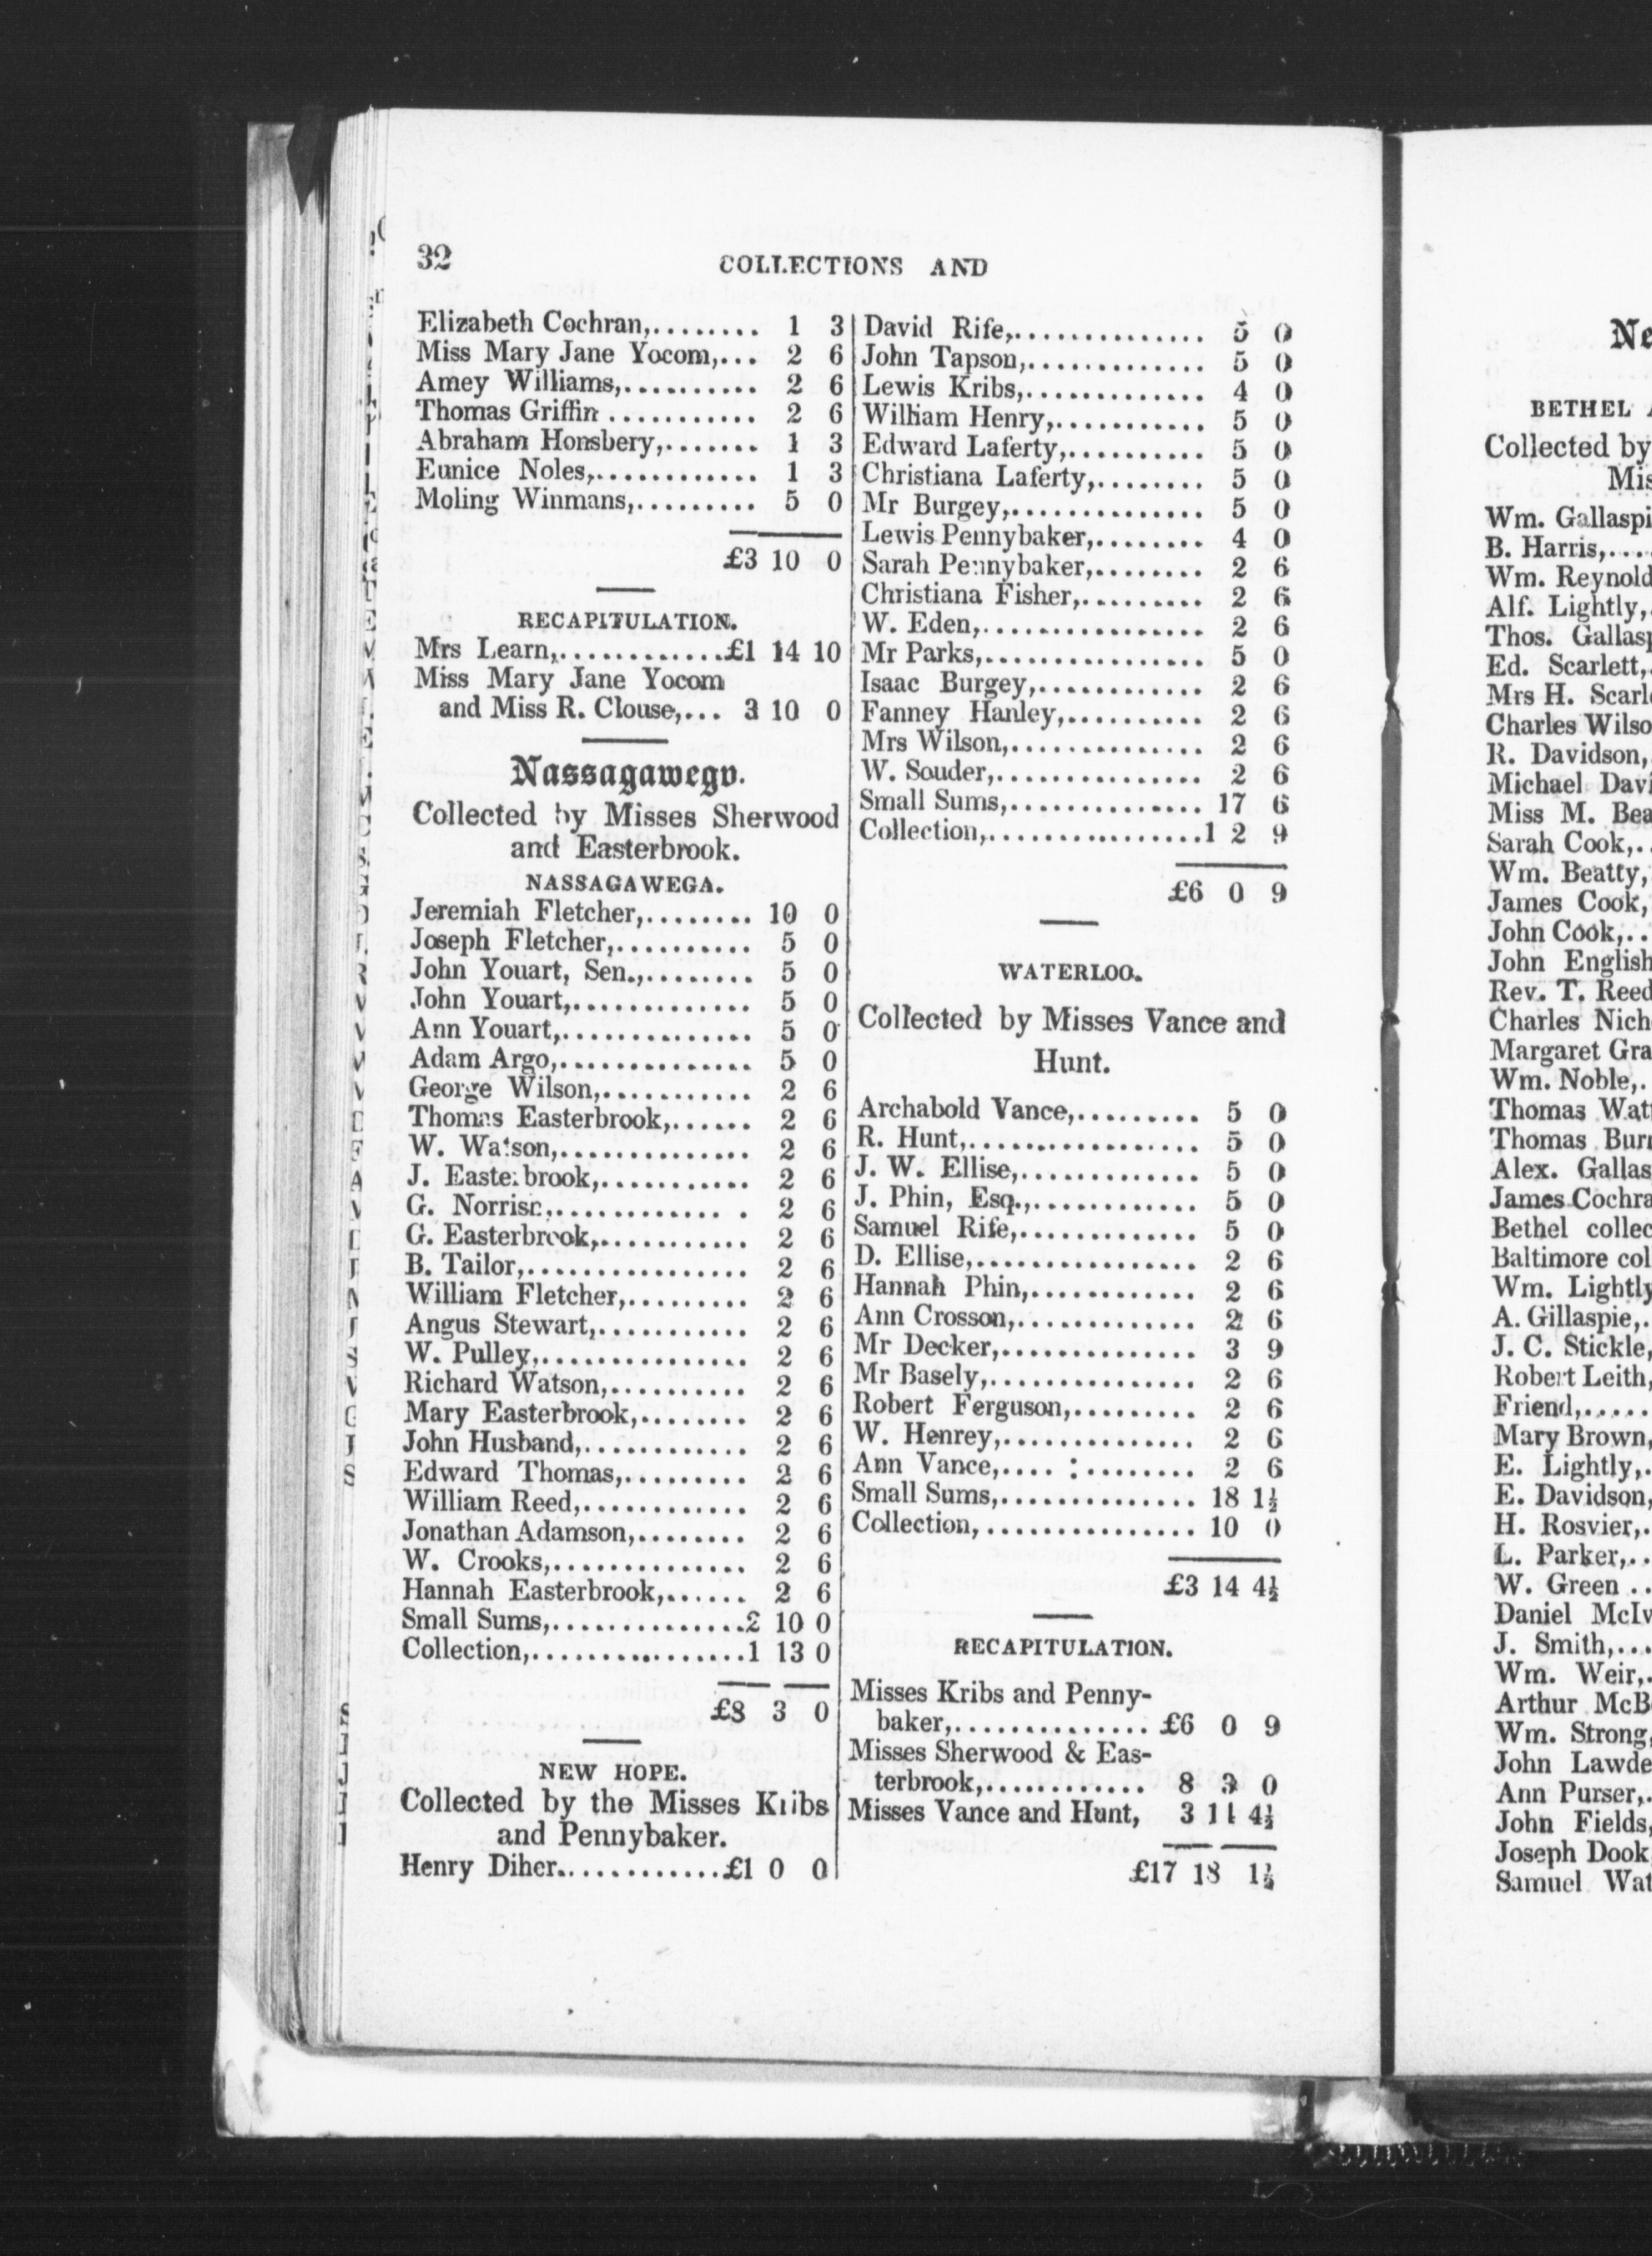 32 COLLECTIONS AND
Elizabeth Cochran,........ 1 3
Miss Mary Jane Yocom,... 2 6
Amey Williams,.......... 2 6
Thomas Griffin ........... 2 6
Abraham Honsbery,....... 1 3
Eunice Noles,............ 1 3
Moling Winmans,......... 5 0
£3 10 0
RECAPITULATION.
Mrs Learn,.............£1 14 10
Miss Mary Jane Yocom
and Miss R. Clouse,... 3 10 0
Nassagawegv.
Collected by Misses Sherwood
and Easterbrook.
NASSAGAWEGA.
Jeremiah Fletcher,........ 10 0
Joseph Fletcher,.......... 5 0
John Youart, Sen.,........ 5 0
John Youart,............. 5 0
Ann Youart,.............. 5 0
Adam Argo,.............. 5 0
George Wilson,........... 2 6
Thomas Easterbrook,...... 2 6
W. Watson,.............. 2 6
J. Easterbrook,........... 2 6
G. Norrisn,............. . 2 6
G. Easterbrook,........... 2 6
B. Tailor,................ 2 6
William Fletcher,......... 2 6
Angus Stewart,........... 2 6
W. Pulley,............... 2 6
Richard Watson,.......... 2 6
Mary Easterbrook,........ 2 6
John Husband,............ 2 6
Edward Thomas,......... 2 6
William Reed,............ 2 6
Jonathan Adamson,........ 2 6
W. Crooks,.............. 2 6
Hannah Easterbrook,...... 2 6
Small Sums,..............2 10 0
Collection,................1 13 0
£8 3 0
NEW HOPE.
Collected by the Misses Kribs
and Pennybaker.
Henry Diher.............£1 0 0
David Rife,.............. 5 0
John Tapson,............. 5 0
Lewis Kribs,............. 4 0
William Henry,........... 5 0
Edward Laferty,.......... 5 0
Christiana Laferty,........ 5 0
Mr Burgey,.............. 5 0
Lewis Pennybaker,........ 4 0
Sarah Pennybaker,........ 2 6
Christiana Fisher,......... 2 6
W. Eden,................ 2 6
Mr Parks,................ 5 0
Isaac Burgey,............ 2 6
Fanney Hanley,.......... 2 6
Mrs Wilson,.............. 2 6
W. Souder,............... 2 6
Small Sums,.............. 17 6
Collection,................1 2 9
£6 0 9
WATERLOO.
Collected by Misses Vance and
Hunt.
Archabold Vance,......... 5 0
R. Hunt,................. 5 0
J. W. Ellise,............. 5 0
J. Phin, Esq.,............ 5 0
Samuel Rife,............. 5 0
D. Ellise,................ 2 6
Hannah Phin,............ 2 6
Ann Crosson,............. 2 6
Mr Decker,.............. 3 9
Mr Basely,............... 2 6
Robert Ferguson,......... 2 6
W. Henrey,.............. 2 6
Ann Vance,.... :........ 2 6
Small Sums,.............. 18 1½
Collection, ............... 10 0
£3 14 4½
RECAPITULATION.
Misses Kribs and Penny-
baker,.............. £6 0 9
Misses Sherwood & Eas-
terbrook,............ 8 3 0
Misses Vance and Hunt, 3 14 4½
£17 18 1½
Ne
BETHEL
Collected by
Mis
Wm. Gallaspi
B. Harris,....
Wm. Reynold
Alf. Lightly,
Thos. Gallasp
Ed. Scarlett,
Mrs H. Scarl
Charles Wilso
R. Davidson,
Michael Davi
Miss M. Bea
Sarah Cook,..
Wm. Beatty,
James Cook,
John Cook,..
John English
Rev. T. Reed
Charles Nich
Margaret Gra
Wm. Noble,.
Thomas Wat
Thomas Bur
Alex. Gallas
James Cochra
Bethel collec
Baltimore col
Wm. Lightly
A. Gillaspie,.
J. C. Stickle,
Robert Leith,
Friend,.....
Mary Brown,
E. Lightly,.
E. Davidson,
H. Rosvier,.
L. Parker,..
W. Green ..
Daniel McIv
J. Smith,...
Wm. Weir,.
Arthur McB
Wm. Strong,
John Lawde
Ann Purser,.
John Fields,
Joseph Dook
Samuel Wat